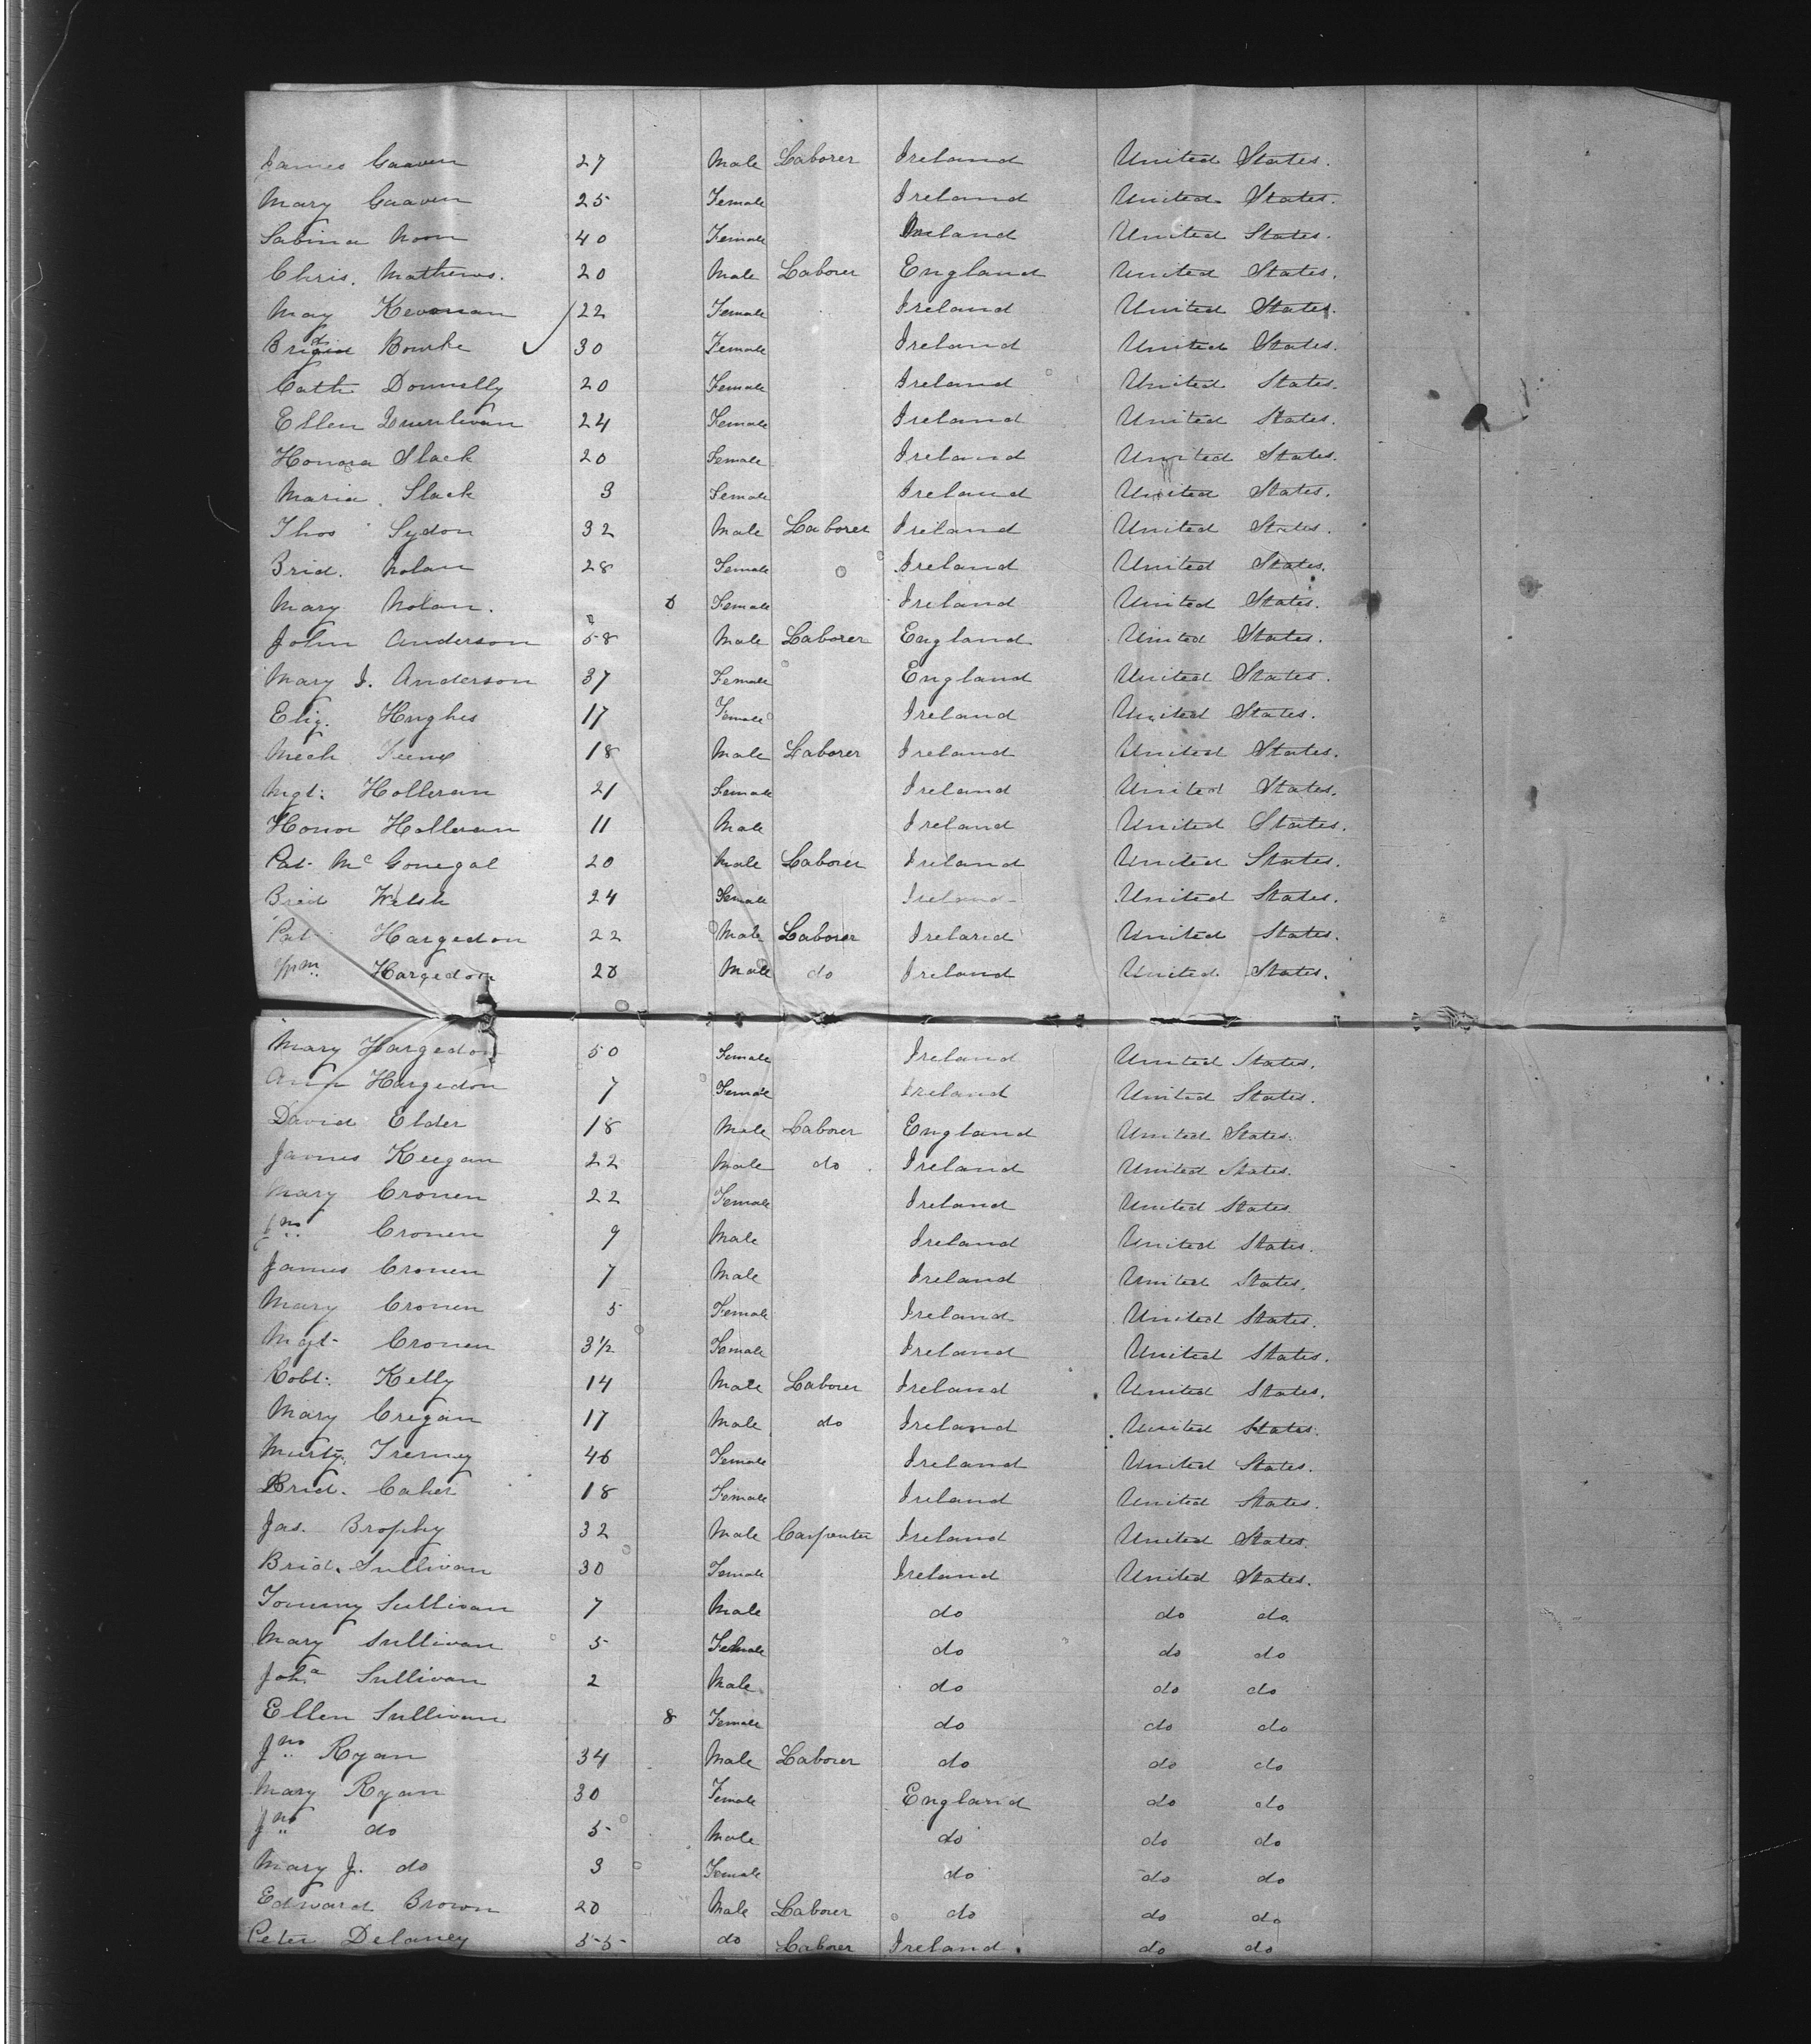 James Gaaven 27 Male Laborer Ireland United States.
Mary Gaaven 25 Female Ireland United States.
Sabina Noon 40 Female Ireland United States.
Chris. Mathews. 20 Male Laborer England United States.
May Kevanan 22 Female Ireland United States.
Brid Bourke 30 Female Ireland United States.
Cath Donnelly 20 Female Ireland United States.
Ellen Quenlivan 24 Female Ireland United States.
Honora Slack 20 Female Ireland United States.
Maria Slack 3 Female Ireland United States.
Thos Sydon 32 Male Laborer Ireland United States.
Brid. Nolan 28 Female Ireland United States.
Mary Nolan. 6 Female Ireland United States.
John Anderson 58 Male Laborer England United States.
Mary J. Anderson 37 Female England United States.
Eliz. Hughes 17 Female Ireland United States.
Mich 18 Male Laborer Ireland United States.
Mgt: Holleran 21 Female Ireland United States.
Honor Holleran 11 Male Ireland United States.
Pat. McGonegal 20 Male Laborer Ireland United States.
Brid Welsh 24 Female Ireland United States.
Pat Hargedon 22 Male Laborer Ireland United States.
Wm Hargedon 20 Male do Ireland United States.
Mary Hargedon 50 Female Ireland United States.
Ann Hargedon 7 Female Ireland United States.
David Elder 18 Male Laborer England United States.
James Keegan 22 Male do Ireland United States.
Mary Cronen 22 Female Ireland United States.
Jno Cronen 9 Male Ireland United States.
James Cronen 7 Male Ireland United States.
Mary Cronen 5 Female Ireland United States.
Mgt Cronen 3½ Female Ireland United States.
Robt. Kelly 14 Male Laborer Ireland United States.
Mary Cregan 17 Male do Ireland United States.
Murty. Tierney 46 Female Ireland United States.
Brid. Caher 18 Female Ireland United States.
Jas. Brophy 32 Male Carpenter Ireland United States.
Brid. Sullivan 30 Female Ireland United States.
Tommy Sullivan 7 Male do do do.
Mary Sullivan 5 Female do do do
Joha Sullivan 2 Male do do do
Ellen Sullivan 8 Female do do do
Jno Ryan 34 Male Laborer do do do
Mary Ryan 30 Female England do do
Jno do 5 Male do do do
Mary J. do 3 Female do do do
Edward Brown 20 Male Laborer do do do
Peter Delaney 55 do Laborer Ireland. do do